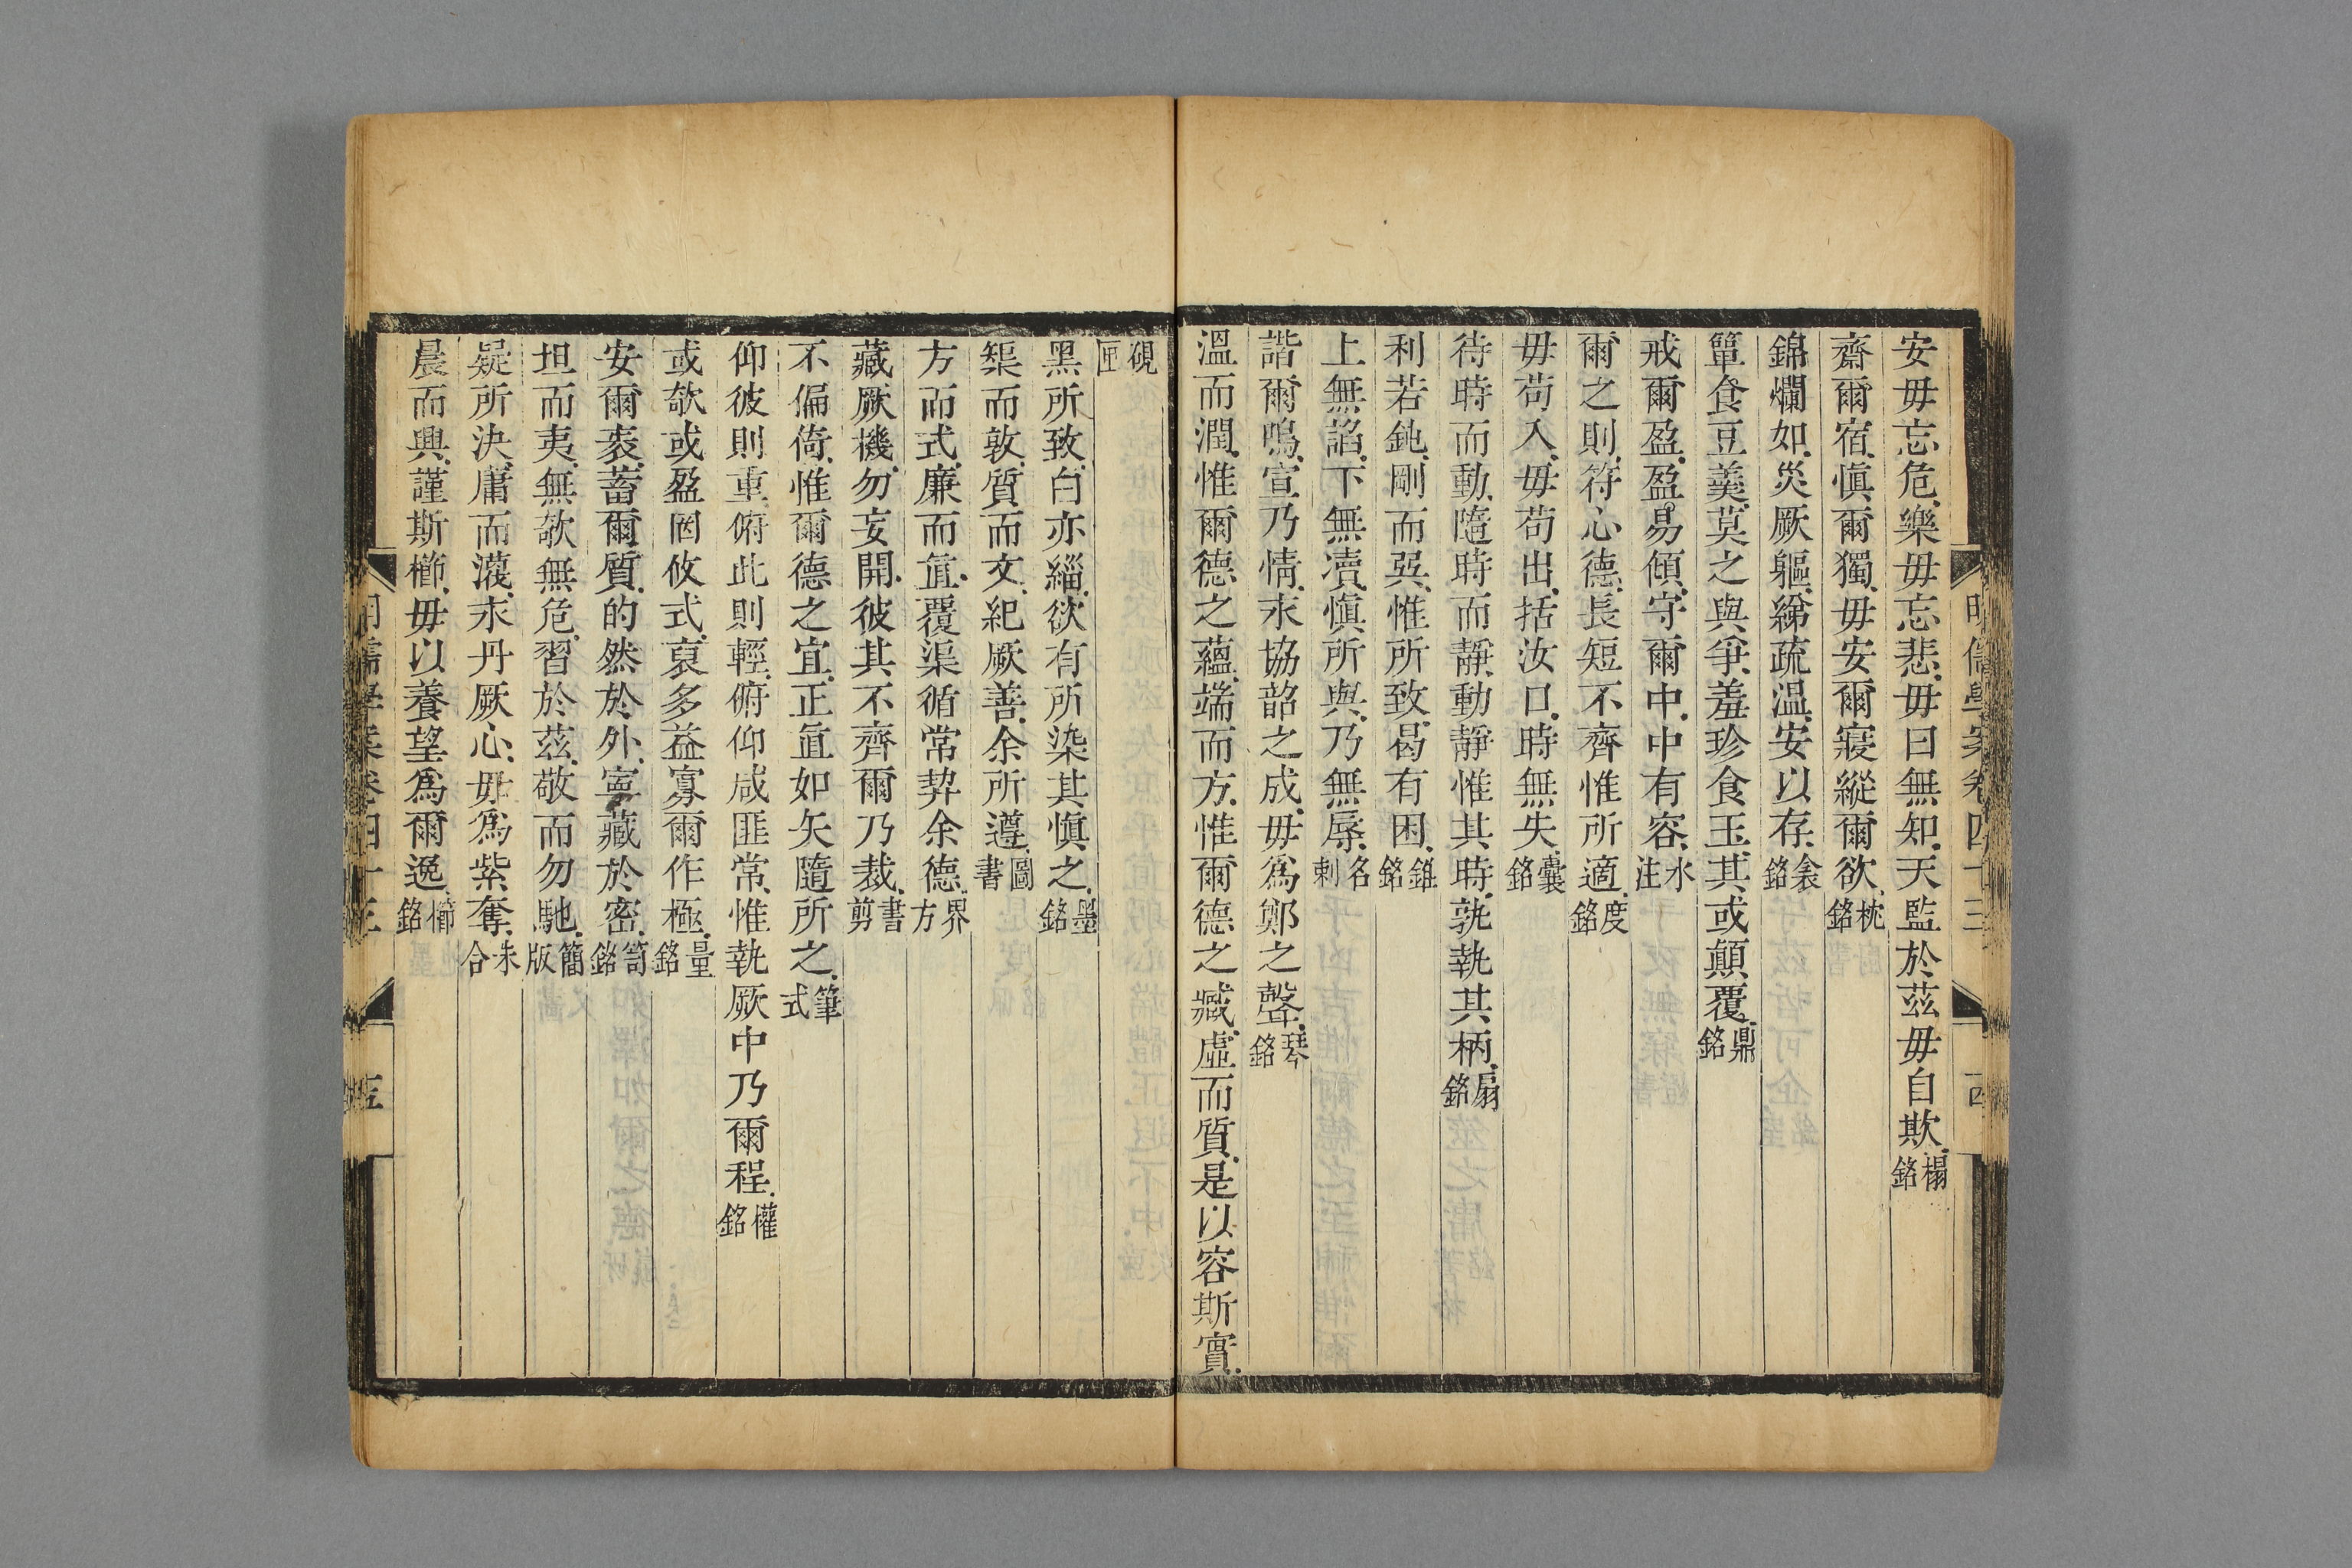 安毋忘危樂毋忘悲毋曰無知天監於茲毋自欺榻銘
齋爾宿慎爾獨毋安爾寢縱爾欲枕銘
錦爛如災厥軀綈疏溫安以存衾銘
簞食豆羹莫之與爭羞珍食玉其或顛覆鼎銘
戒爾盈盈易傾守爾中中有容水注
爾之則符心德長短不齊惟所適度銘
毋苟入毋苟出括汝口時無失囊銘
待時而動隨時而靜動靜惟其時孰執其柄扇銘
利若鈍剛而巽惟所致曷有困錐銘
上無諂下無瀆慎所與乃無辱名刺
諧爾鳴宣乃情永協韶之成毋爲鄭之聲琴銘
溫而潤惟爾德之蘊端而方惟爾德之臧虛而質是以容斯實
硯匣
黑所致白亦緇欲有所染其慎之墨銘
榘而敦質而文紀厥善余所遵圖書
方而式廉而直覆渠循常契余德界方
藏厥機勿妄開彼其不齊爾乃裁書剪
不偏倚惟爾德之宜正直如矢隨所之筆式
仰彼則重俯此則輕俯仰咸匪常惟執厥中乃爾程權銘
或欹或盈罔攸式裒多益寡爾作極量銘
安爾裘蓄爾質的然於外寧藏於密笥銘
坦而夷無欹無危習於茲敬而勿馳簡版
疑所決庸而灌永丹厥心毋爲紫奪朱合
晨而興謹斯櫛毋以養望爲爾逸櫛銘
明儒學案卷四十三